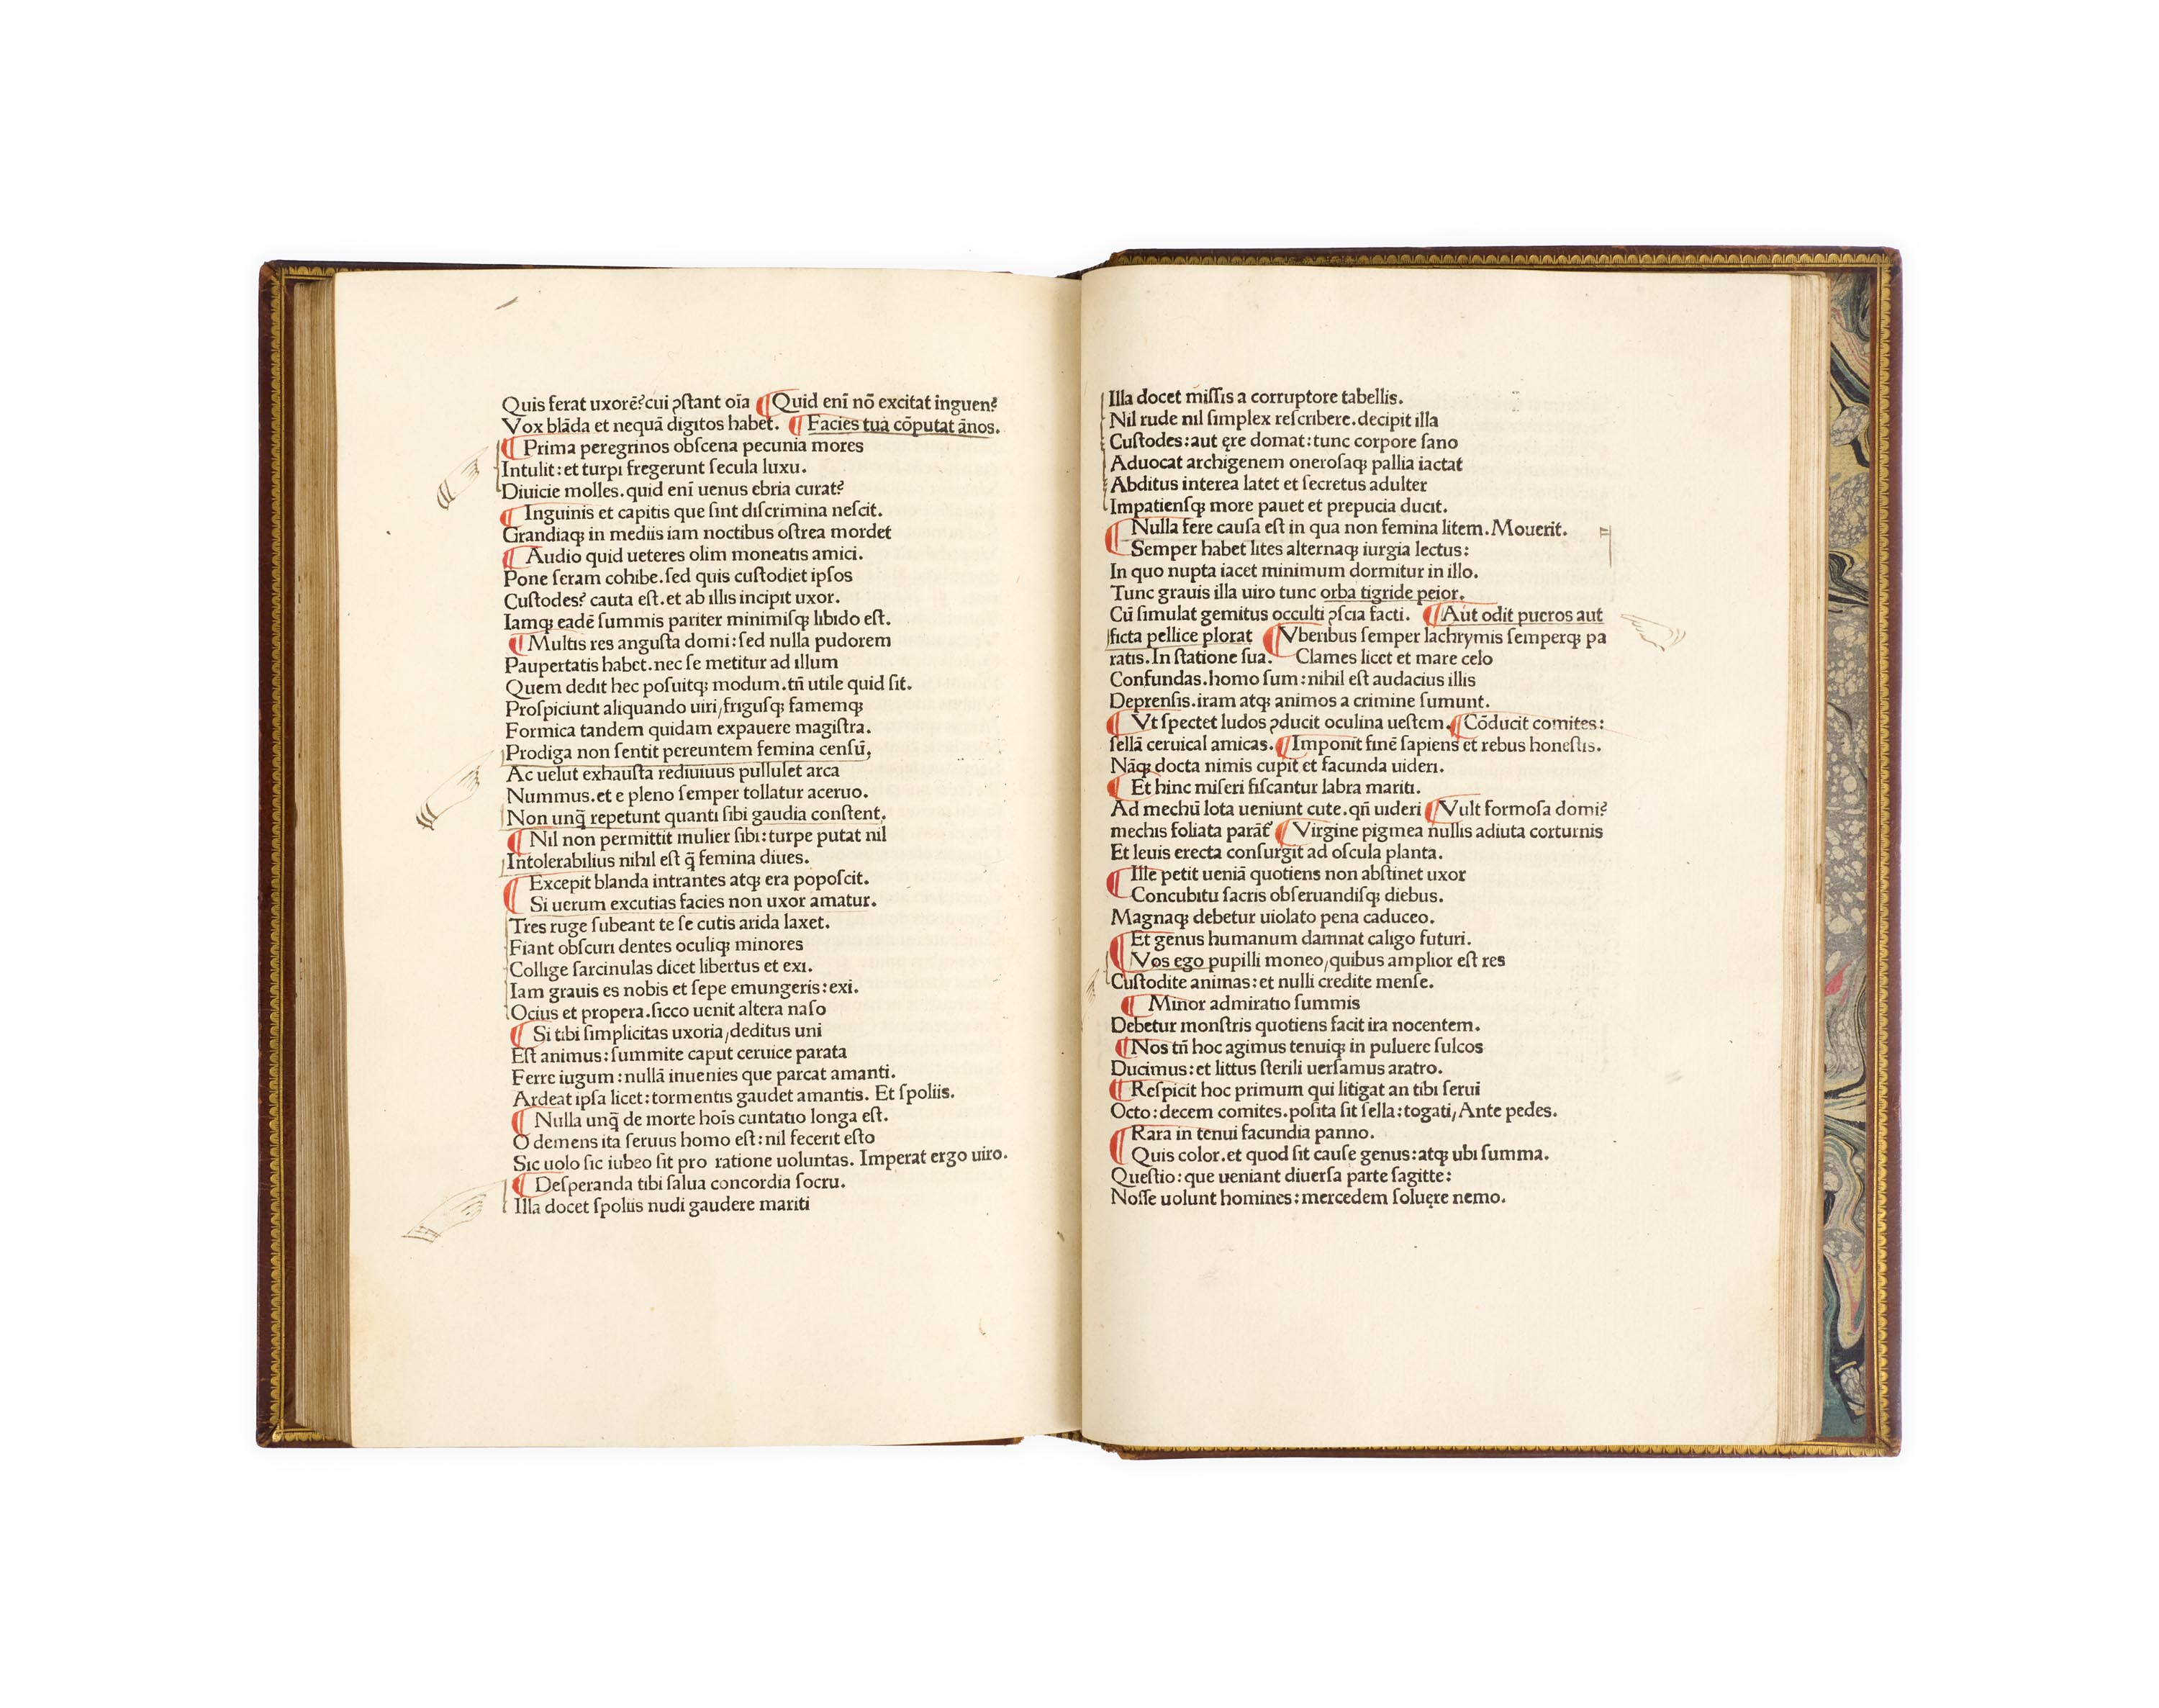 Quis ferat uxorē?cui ꝯſtant oīa ¶Quid enī nō excitat inguen?
Vox blāda et nequā digitos habet. ¶Facies tua cōputat ānos.
¶ Prima peregrinos obſcena pecunia mores
Intulit:et turpi fregerunt ſecula luxu.
Diuicie molles.quid enī uenus ebria curat?
¶ Inguinis et capitis que ſint diſcrimina neſcit.
Grandiaqꝫ in mediis iam noctibus oſtrea mordet
¶ Audio quid ueteres olim moneatis amici.
Pone ſeram cohibe.ſed quis cuſtodiet ipſos
Cuſtodes? cauta eſt.et ab illis incipit uxor.
Iamqꝫ eadē ſummis pariter minimiſqꝫ libido eſt.
¶ Multis res anguſta domi:ſed nulla pudorem
Paupertatis habet.nec ſe metitur ad illum
Quem dedit hec poſuitqꝫ modum.tn̄ utile quid ſit.
Proſpiciunt aliquando uiri/friguſqꝫ famemqꝫ
Formica tandem quidam expauere magiſtra.
Prodiga non ſentit pereuntem femina cenſū,
Ac uelut exhauſta rediuiuus pullulet arca
Nummus.et e pleno ſemper tollatur aceruo.
Non unq̄ repetunt quanti ſibi gaudia conſtent.
¶ Nil non permittit mulier ſibi:turpe putat nil
Intolerabilius nihil eſt q̄ femina diues.
¶ Excepit blanda intrantes atqꝫ era popoſcit.
Si uerum excutias facies non uxor amatur.
Tres ruge ſubeant te ſe cutis arida laxet.
Fiant obſcuri dentes oculiqꝫ minores
Collige ſarcinulas dicet libertus et exi.
Iam grauis es nobis et ſepe emungeris:exi.
Ocius et propera.ſicco uenit altera naſo
¶ Si tibi ſimplicitas uxoria/deditus uni
Eſt animus:ſummite caput ceruice parata
Ferre iugum:nullā inuenies que parcat amanti.
Ardeat ipſa licet:tormentis gaudet amantis. Et ſpoliis.
¶ Nulla unq̄ de morte hoīs cuntatio longa eſt.
O demens ita ſeruus homo eſt:nil fecerit eſto
Sic uolo ſic iubeo ſit pro ratione uoluntas. Imperat ergo uiro.
¶ Deſperanda tibi ſalua concordia ſocru.
Illa docet ſpoliis nudi gaudere mariti
Illa docet miſſis a corruptore tabellis.
Nil rude nil ſimplex reſcribere.decipit illa
Cuſtodes:aut ęre domat:tunc corpore ſano
Aduocat archigenem oneroſaqꝫ pallia iactat
Abditus interea latet et ſecretus adulter
Impatienſqꝫ more pauet et prepucia ducit.
¶ Nulla fere cauſa eſt in qua non femina litem. Mouerit.
Semper habet lites alternaqꝫ iurgia lectus:
In quo nupta iacet minimum dormitur in illo.
Tunc grauis illa uiro tunc orba tigride peior.
Cū ſimulat gemitus occulti ꝯſcia facti. ¶Aut odit pueros aut
ficta pellice plorat ¶Vberibus ſemper lachrymis ſemperqꝫ pa
ratis.In ſtatione ſua. Clames licet et mare celo
Confundas.homo ſum:nihil eſt audacius illis
Deprenſis.iram atqꝫ animos a crimine ſumunt.
¶ Vt ſpectet ludos ꝯducit oculina ueſtem.¶Cōducit comites:
ſellā ceruical amicas.¶Imponit finē ſapiens et rebus honeſtis.
Nāqꝫ docta nimis cupit et facunda uideri.
¶ Et hinc miſeri fiſcantur labra mariti.
Ad mechū lota ueniunt cute.qn̄ uideri ¶Vult formoſa domi?
mechis foliata parāt᷑ ¶Virgine pigmea nullis adiuta corturnis
Et leuis erecta conſurgit ad oſcula planta.
¶ Ille petit ueniā quotiens non abſtinet uxor
Concubitu ſacris obſeruandiſqꝫ diebus.
Magnaqꝫ debetur uiolato pena caduceo.
¶ Et genus humanum damnat caligo futuri.
Vos ego pupilli moneo/quibus amplior eſt res
Cuſtodite animas:et nulli credite menſe.
¶ Minor admiratio ſummis
Debetur monſtris quotiens facit ira nocentem.
¶ Nos tn̄ hoc agimus tenuiqꝫ in puluere ſulcos
Ducimus:et littus ſterili uerſamus aratro.
¶ Reſpicit hoc primum qui litigat an tibi ſerui
Octo:decem comites.poſita ſit ſella:togati/Ante pedes.
¶ Rara in tenui facundia panno.
Quis color.et quod ſit cauſe genus:atqꝫ ubi ſumma.
Queſtio:que ueniant diuerſa parte ſagitte:
Noſſe uolunt homines:mercedem ſoluęre nemo.